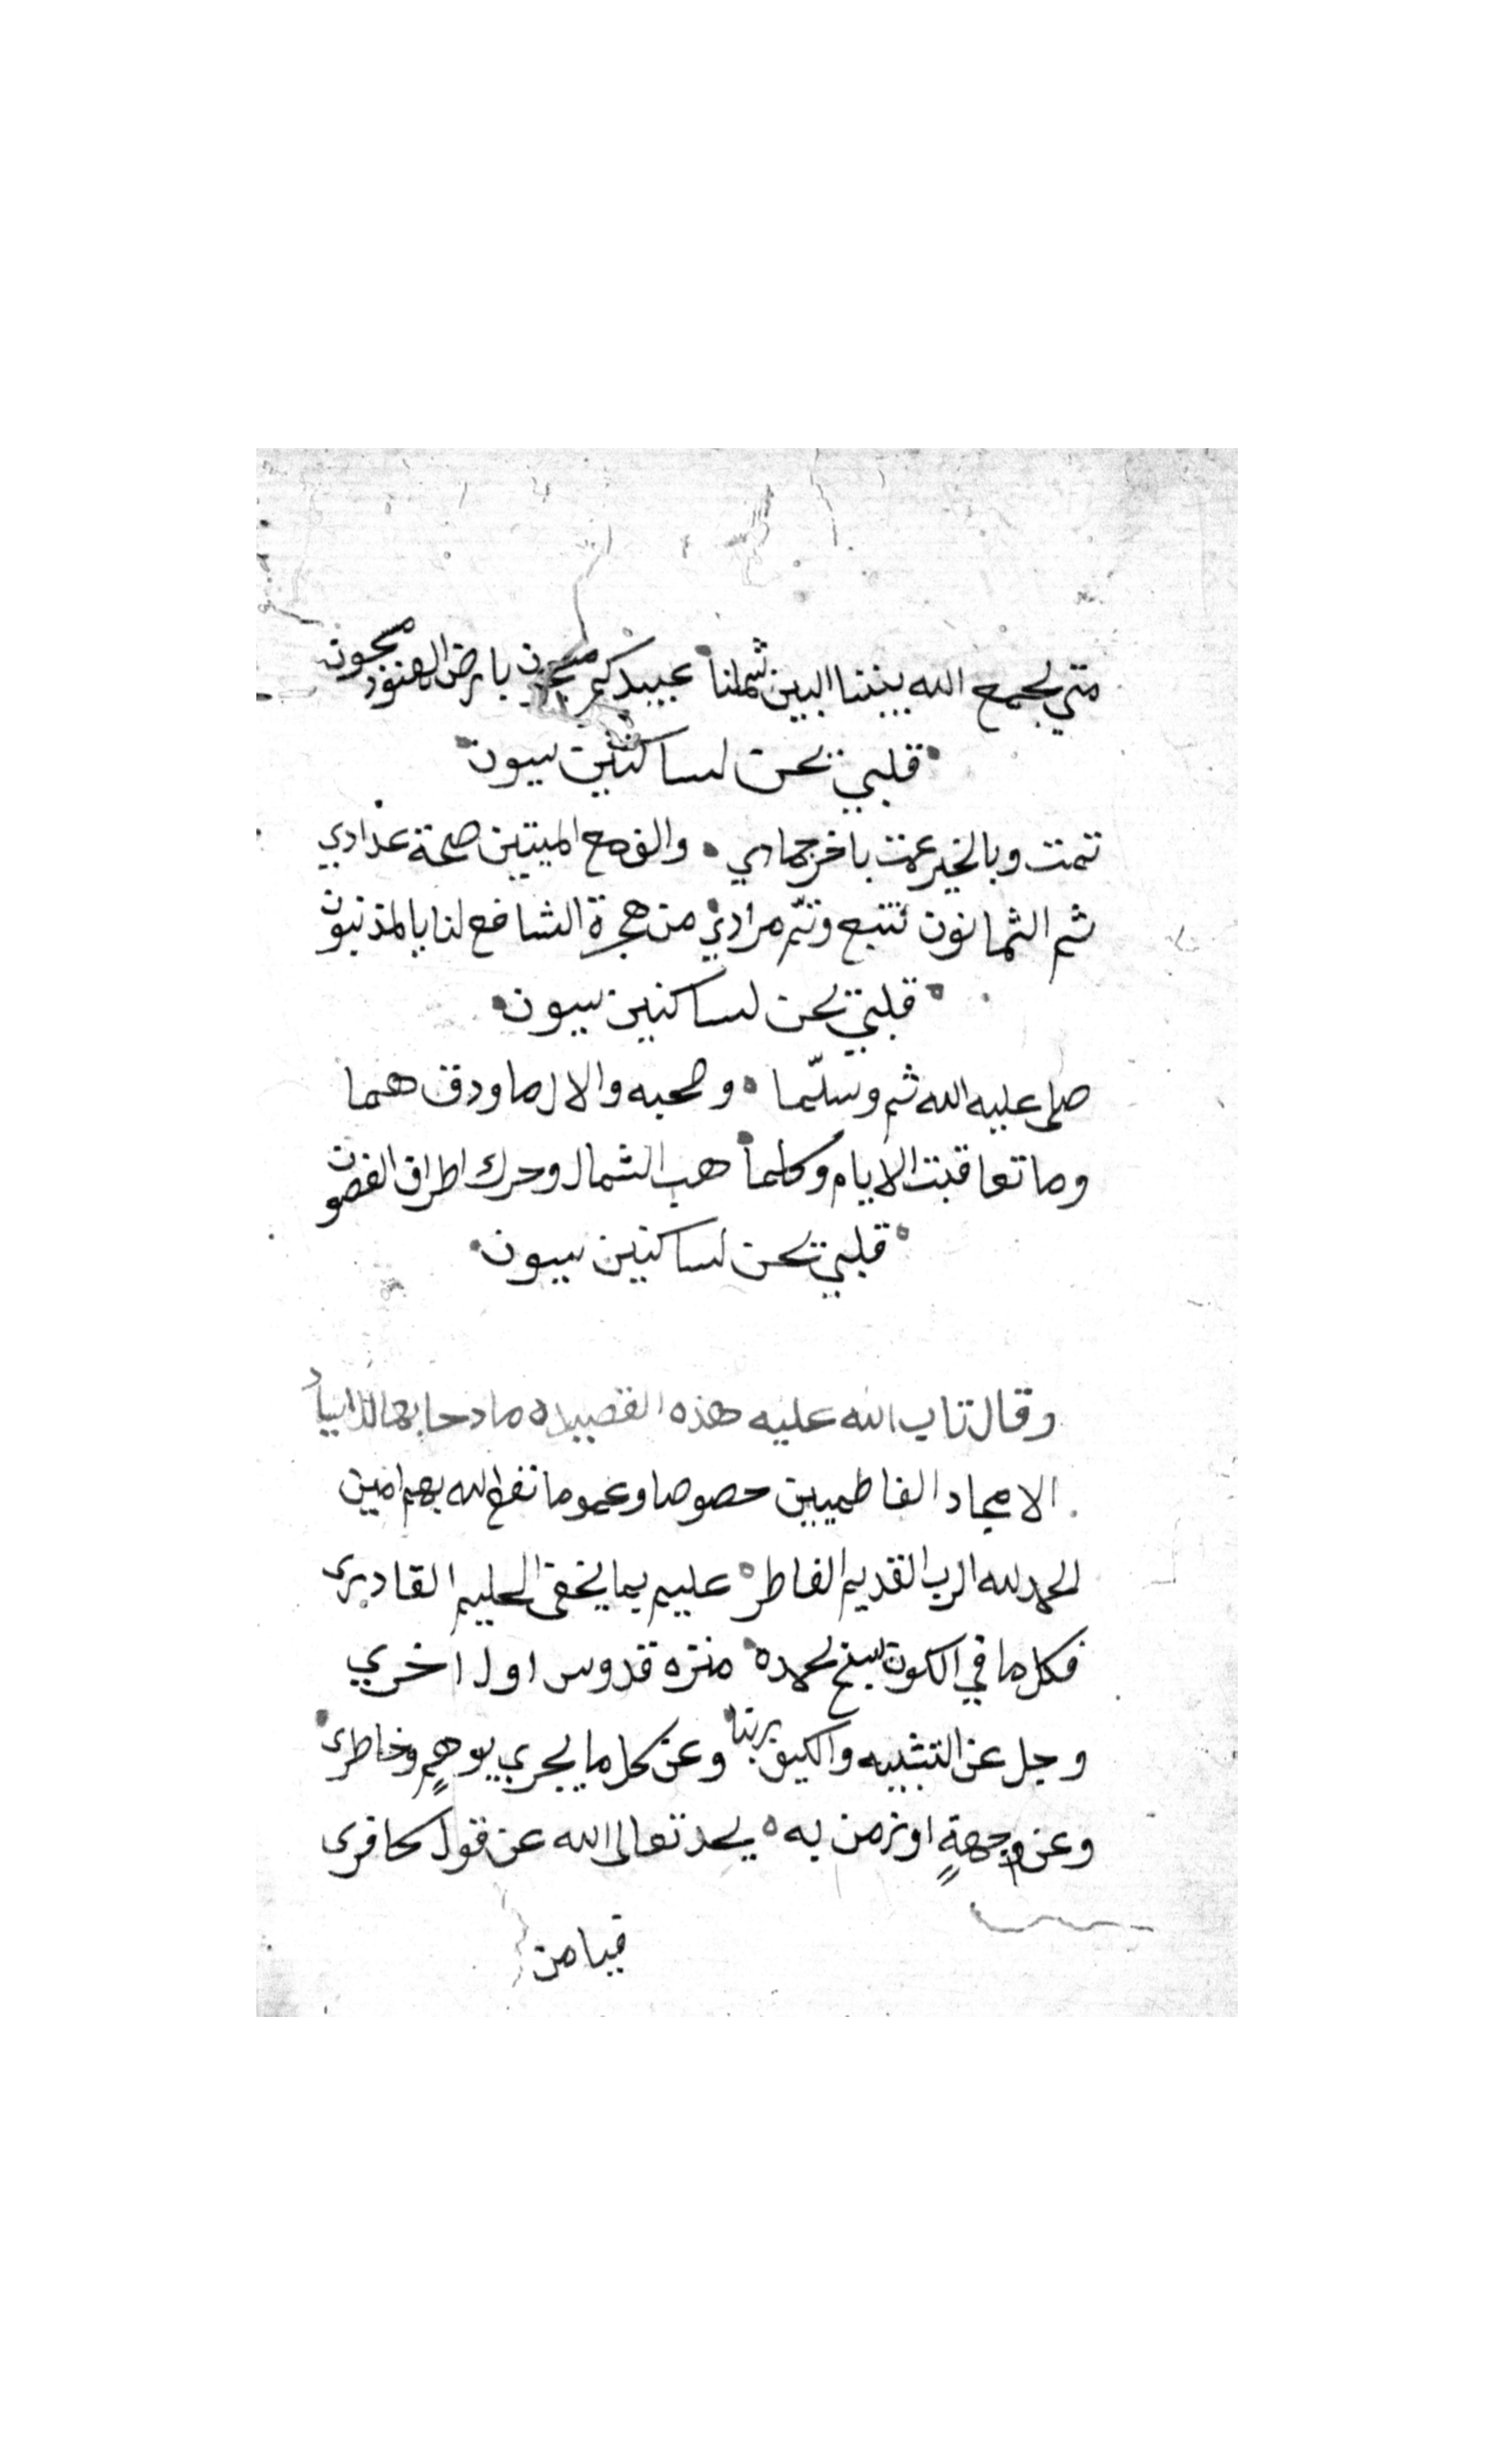 متي يجمع الله بيننا البين شملنا عبيدكم مسجون بارض الهنود مجون
قلبي يحن لساكنين بيون
تمت وبالخير عمت باخر جمادي والف مع الميتين صحة عدادي
ثم الثمانون تتبع وتم مرادي من هجرة الشافع لنا بالمذنبون
قلبي يحن لساكنين بيون
صلى عليه الله ثم وسلّما وصحبه والال ما ودق هما
وما تعاقبت الايام وكلما هب الشمال وحرك اطراف الغصون
قلبي يحن لساكنين بيون
وقال تاب الله عليه هذه القصيده مادحا بها
الامجاد الفاطميين خصوصا وعموما نفع الله بهم امين
الحمد لله الرب القديم الفاطر عليم بما يخفى الحليم القادرى
فكل ما في الكون يسبح بحمده منزه قدوس اول اخري
وجل عن التشبيه والكيف ربنا وعن كل ما يجري بوهمٍ وخاطرى
وعن وجهةٍ او زمن به يحد تعالى الله عن قول كافرى
فيا من